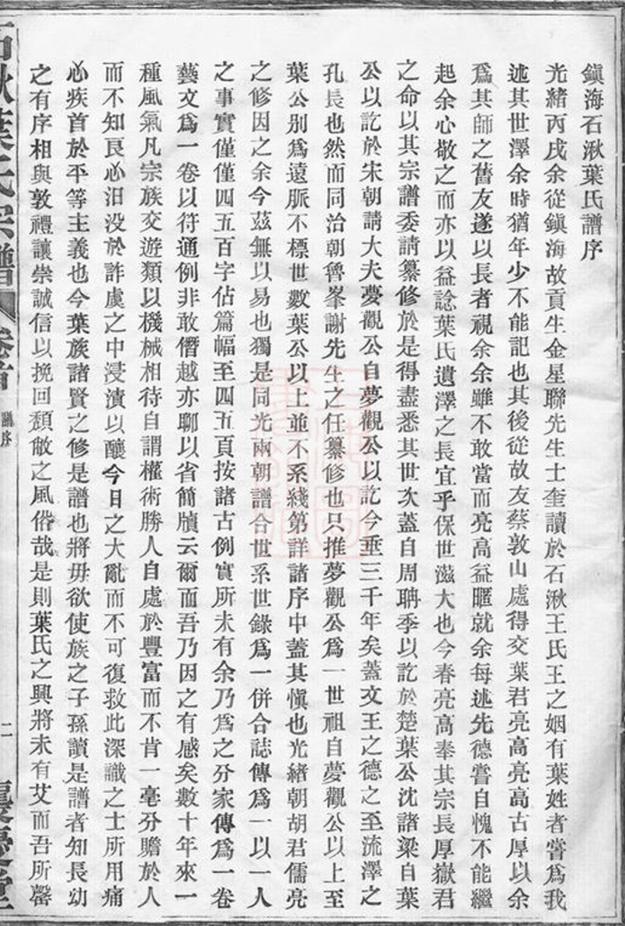 鎮海石湫葉氏譜序
光緒丙戌余從鎮海故貢生金星聯先生士奎讀於石湫王氏王之姻有葉姓者嘗爲我
述其世澤余時猶年少不能記也其後從故友蔡敦山處得交葉君亮高亮高古厚以余
爲其師之舊友遂以長者視余余雖不敢當而亮高益暱就余每述先德嘗自愧不能繼
起余心敬之而亦以益諗葉氏遺澤之長宜乎保世滋大也今春亮高奉其宗長厚嶽君
之命以其宗譜委請纂修於是得盡悉其世次蓋自周聃季以訖於楚葉公沈諸梁自葉
公以訖於宋朝請大夫夢觀公自夢觀公以訖今垂三千年矣蓋文王之德之至流澤之
孔長也然而同治朝魯峯謝先生之任纂修也只推夢觀公爲一世祖自夢觀公以上至
葉公別爲遠脈不標世數葉公以上並不系綫第詳諸序中蓋其愼也光緒朝胡君儒亮
之修因之余今茲無以易也獨是同光兩朝譜合世系世錄爲一併合誌傳爲一以一人
之事實僅僅四五百字佔篇幅至四五頁按諸古例實所未有余乃爲之分家傳爲一卷
藝文爲一卷以符通例非敢僭越亦聊以省簡牘云爾而吾乃因之有感矣數十年來一
種風氣凡宗族交遊類以機械相待自謂權術勝人自處於豐富而不肯一毫分贍於人
而不知良心汨没於詐虞之中浸漬以釀今日之大亂而不可復救此深識之士所用痛
心疾首於平等主義也今葉族諸賢之修是譜也將毋欲使族之子孫讀是譜者知長幼
之有序相與敦禮讓崇誠信以挽回頹敝之風俗哉是則葉氏之興將未有艾而吾所馨
石湫葉氏宗譜
卷首
譜序
二